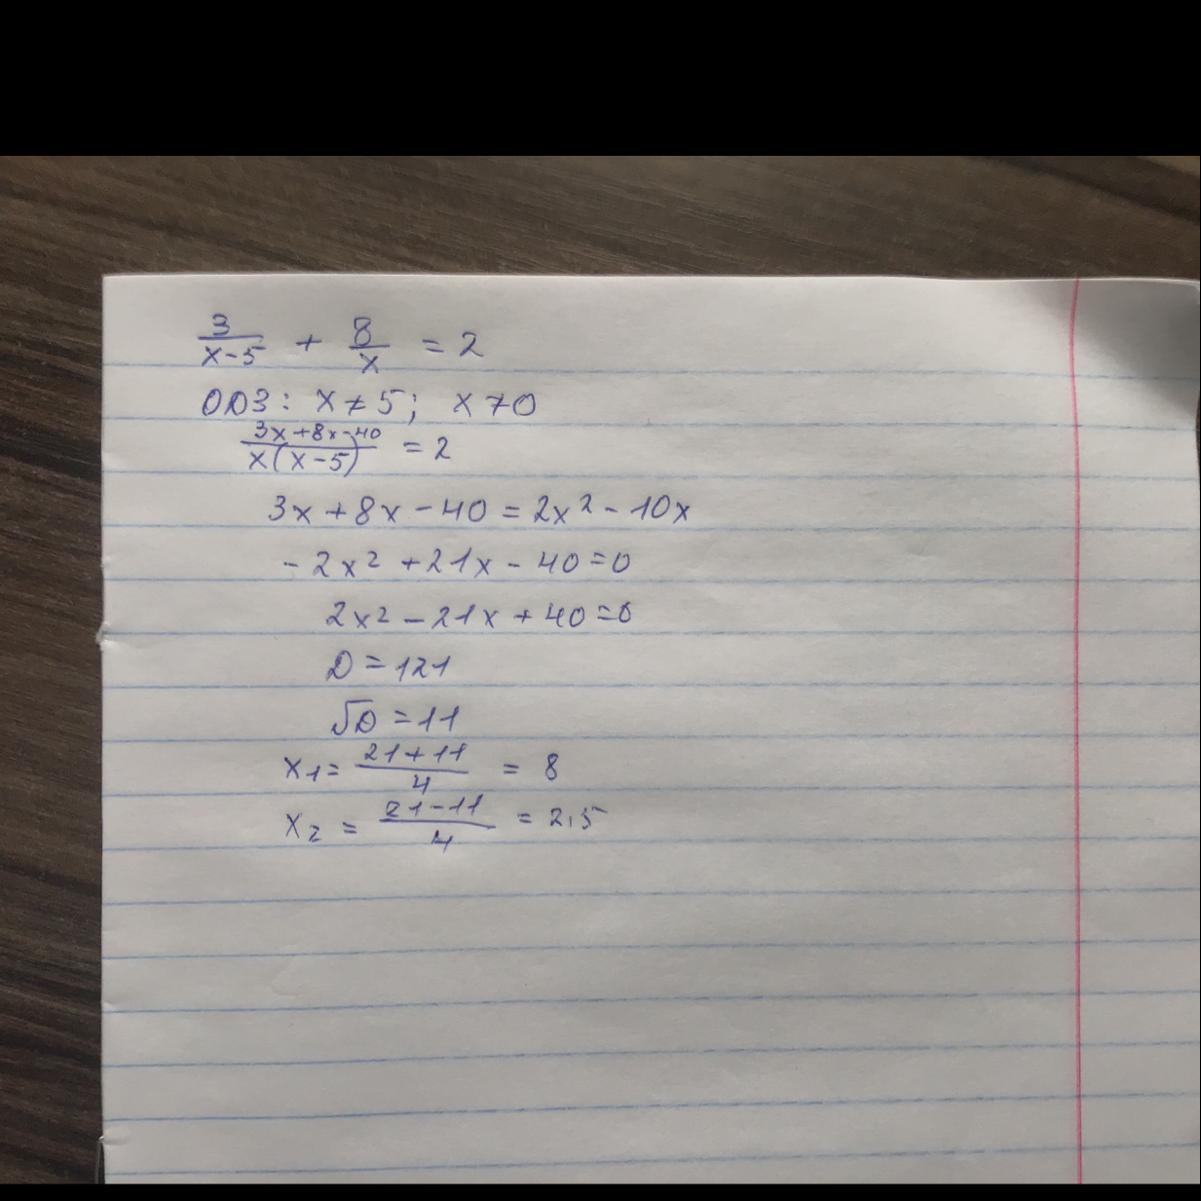 3/(x-5) + 8/x = 2
ОДЗ: x ≠ 5; x ≠ 0
(3x+8x-40)/(x(x-5)) = 2
3x + 8x - 40 = 2x² - 10x
- 2x² + 21x - 40 = 0
2x² - 21x + 40 = 0
D = 121
√D = 11
x₁ = (21+11)/4 = 8
x₂ = (21-11)/4 = 2,5